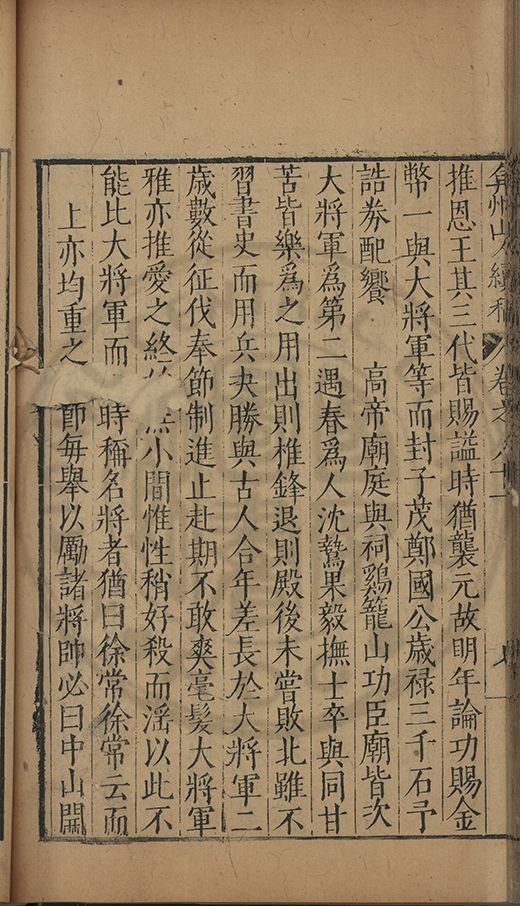 弇州山人續稿 卷之八十一 七
推恩王其三代皆賜謚時猶襲元故明年論功賜金
幣一與大將軍等而封子茂鄭國公歲祿三千石予
誥券配饗 高帝廟庭與祠鷄籠山功臣廟皆次
大將軍爲第二遇春爲人沈鷙果毅撫士卒與同甘
苦皆樂爲之用出則摧鋒退則殿後未嘗敗北雖不
習書史而用兵夬勝與古人合年差長於大將軍二
歲數從征伐奉節制進止赴期不敢爽毫髮大將軍
雅亦推愛之終 無小間惟性稍好殺而滛以此不
能比大將軍而 時稱名將者猶曰徐常徐常云而
上亦均重之 節每舉以勵諸將帥必曰中山開